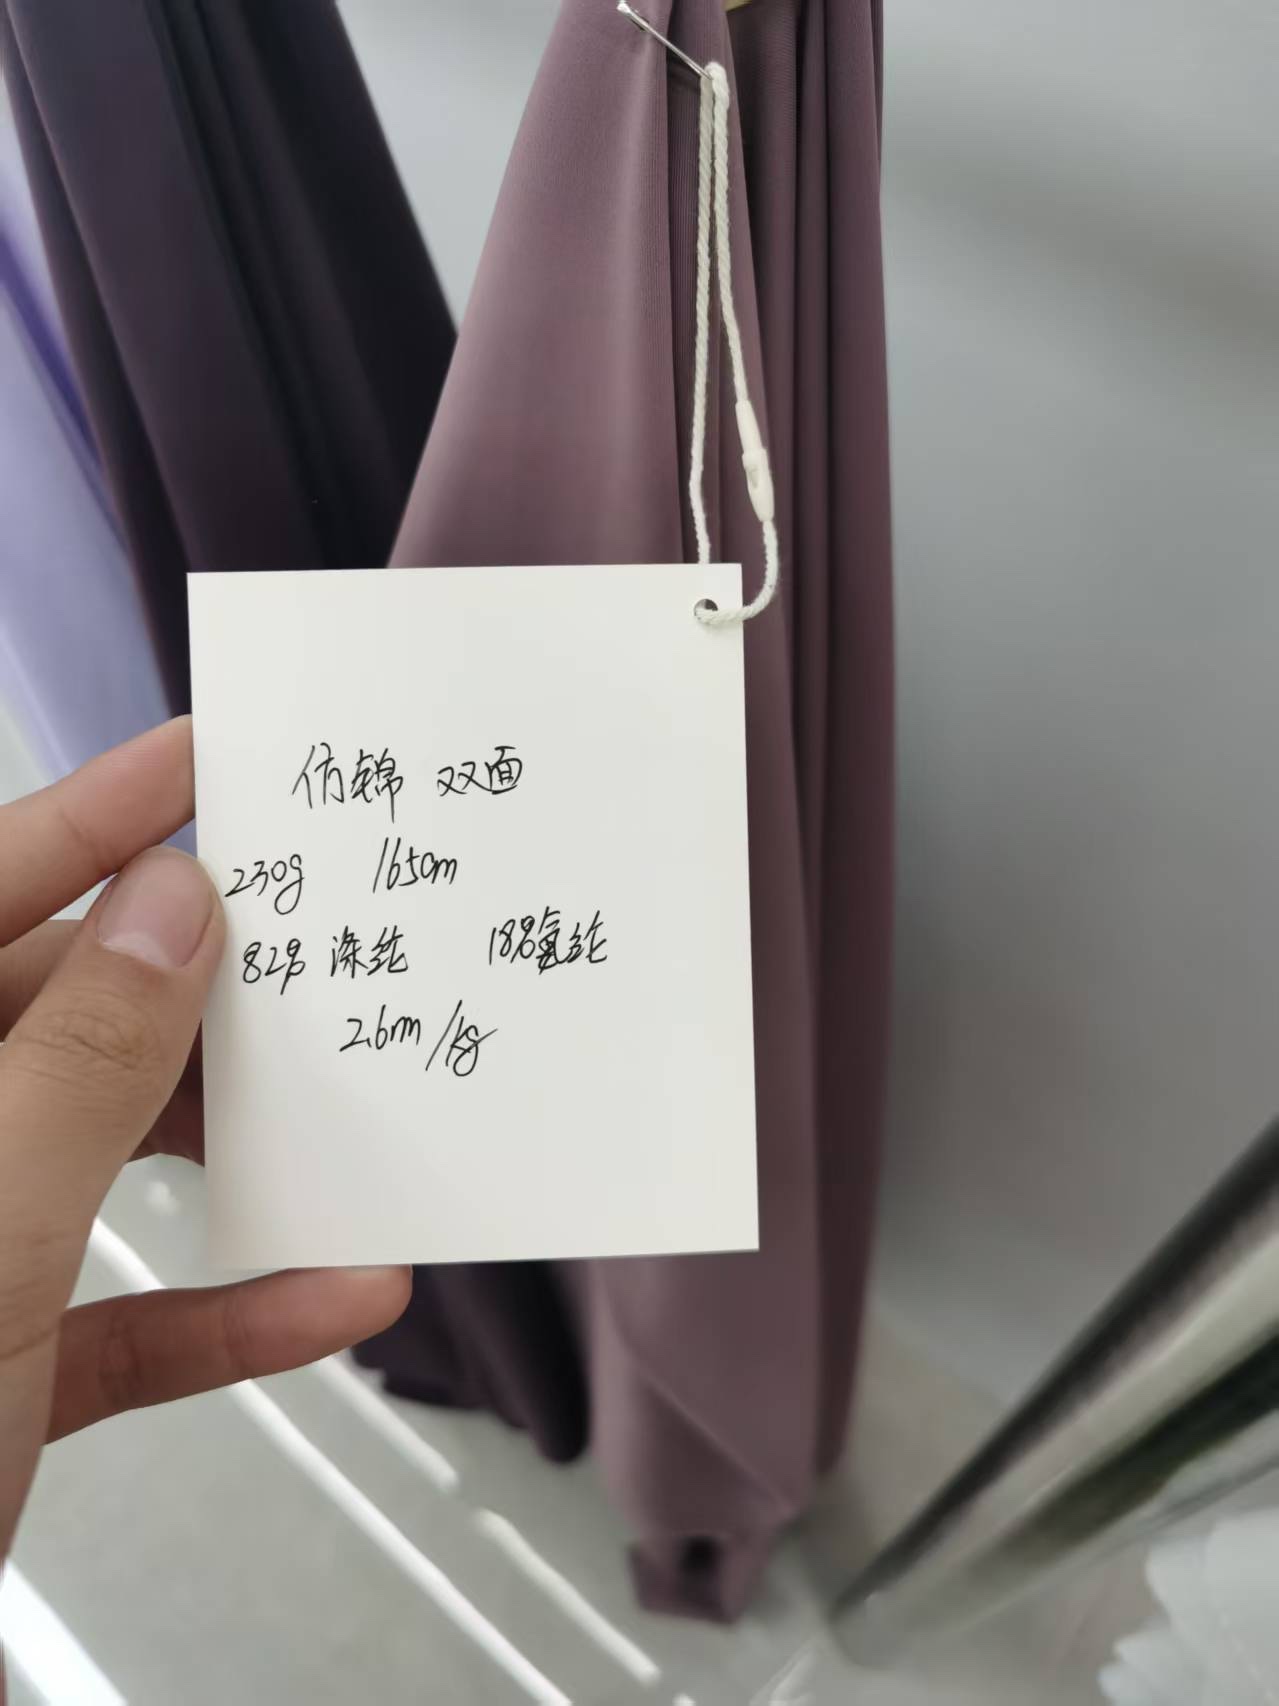 仿锦 双面
230g 165cm
82% 涤纶 18%氨纶
2.6m/kg